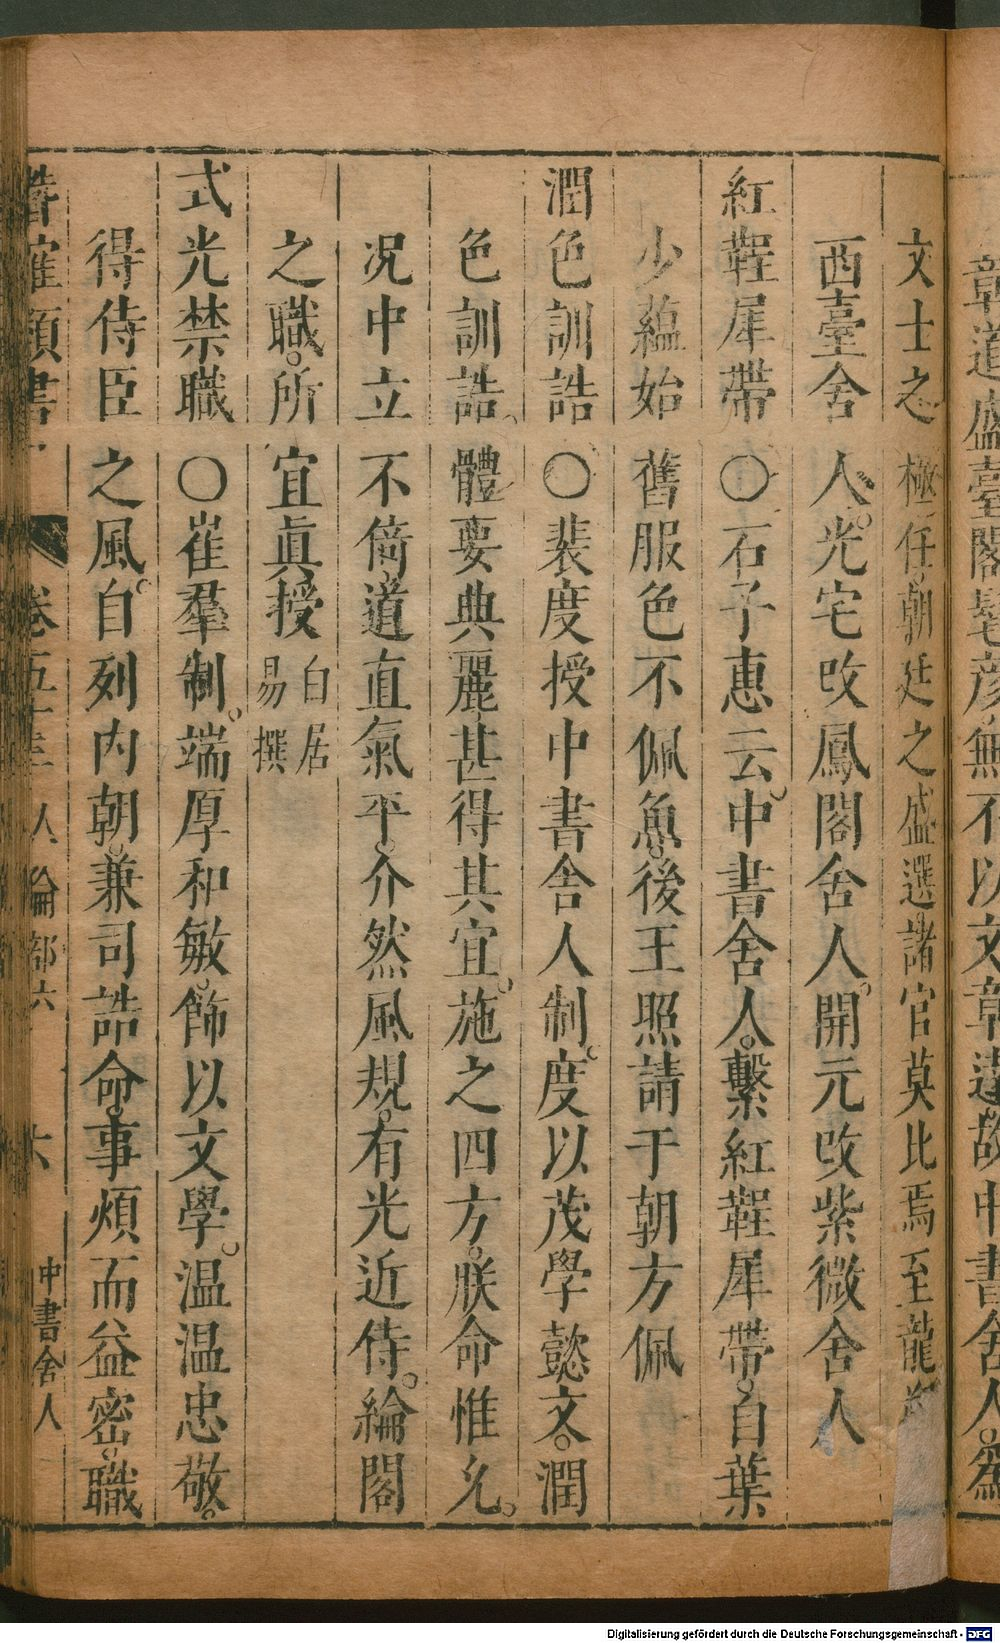 章道盛臺閣髦彦無不以文章達故中書舍人爲
文士之極任朝廷之盛選諸官莫比焉至龍
西臺舍人光宅改鳳閣舍人開元改紫微舍人
紅鞓犀帶○石子惠云中書舍人繫紅鞓犀帶自葉
少蘊始舊服色不佩魚後王照請于朝方佩
潤色訓誥○裴度授中書舍人制度以茂學懿文潤
色訓誥體要典麗甚得其宜施之四方朕命惟允
况中立不倚道直氣平介然風規有光近侍綸閣
之職所宜眞授白居易撰
式光禁職○崔羣制端厚和敏飾以文學温温忠敬
得侍臣之風自列内朝兼司誥命事煩而益密職
類書 卷五十 人倫部六 六 中書舍人
Digitalisierung gefördert durch die Deutsche Forschungsgemeinschaft - DFG